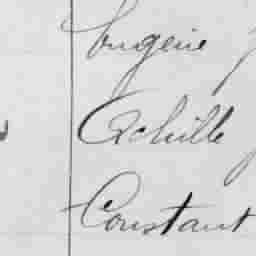 Eugène
Achille
Constant